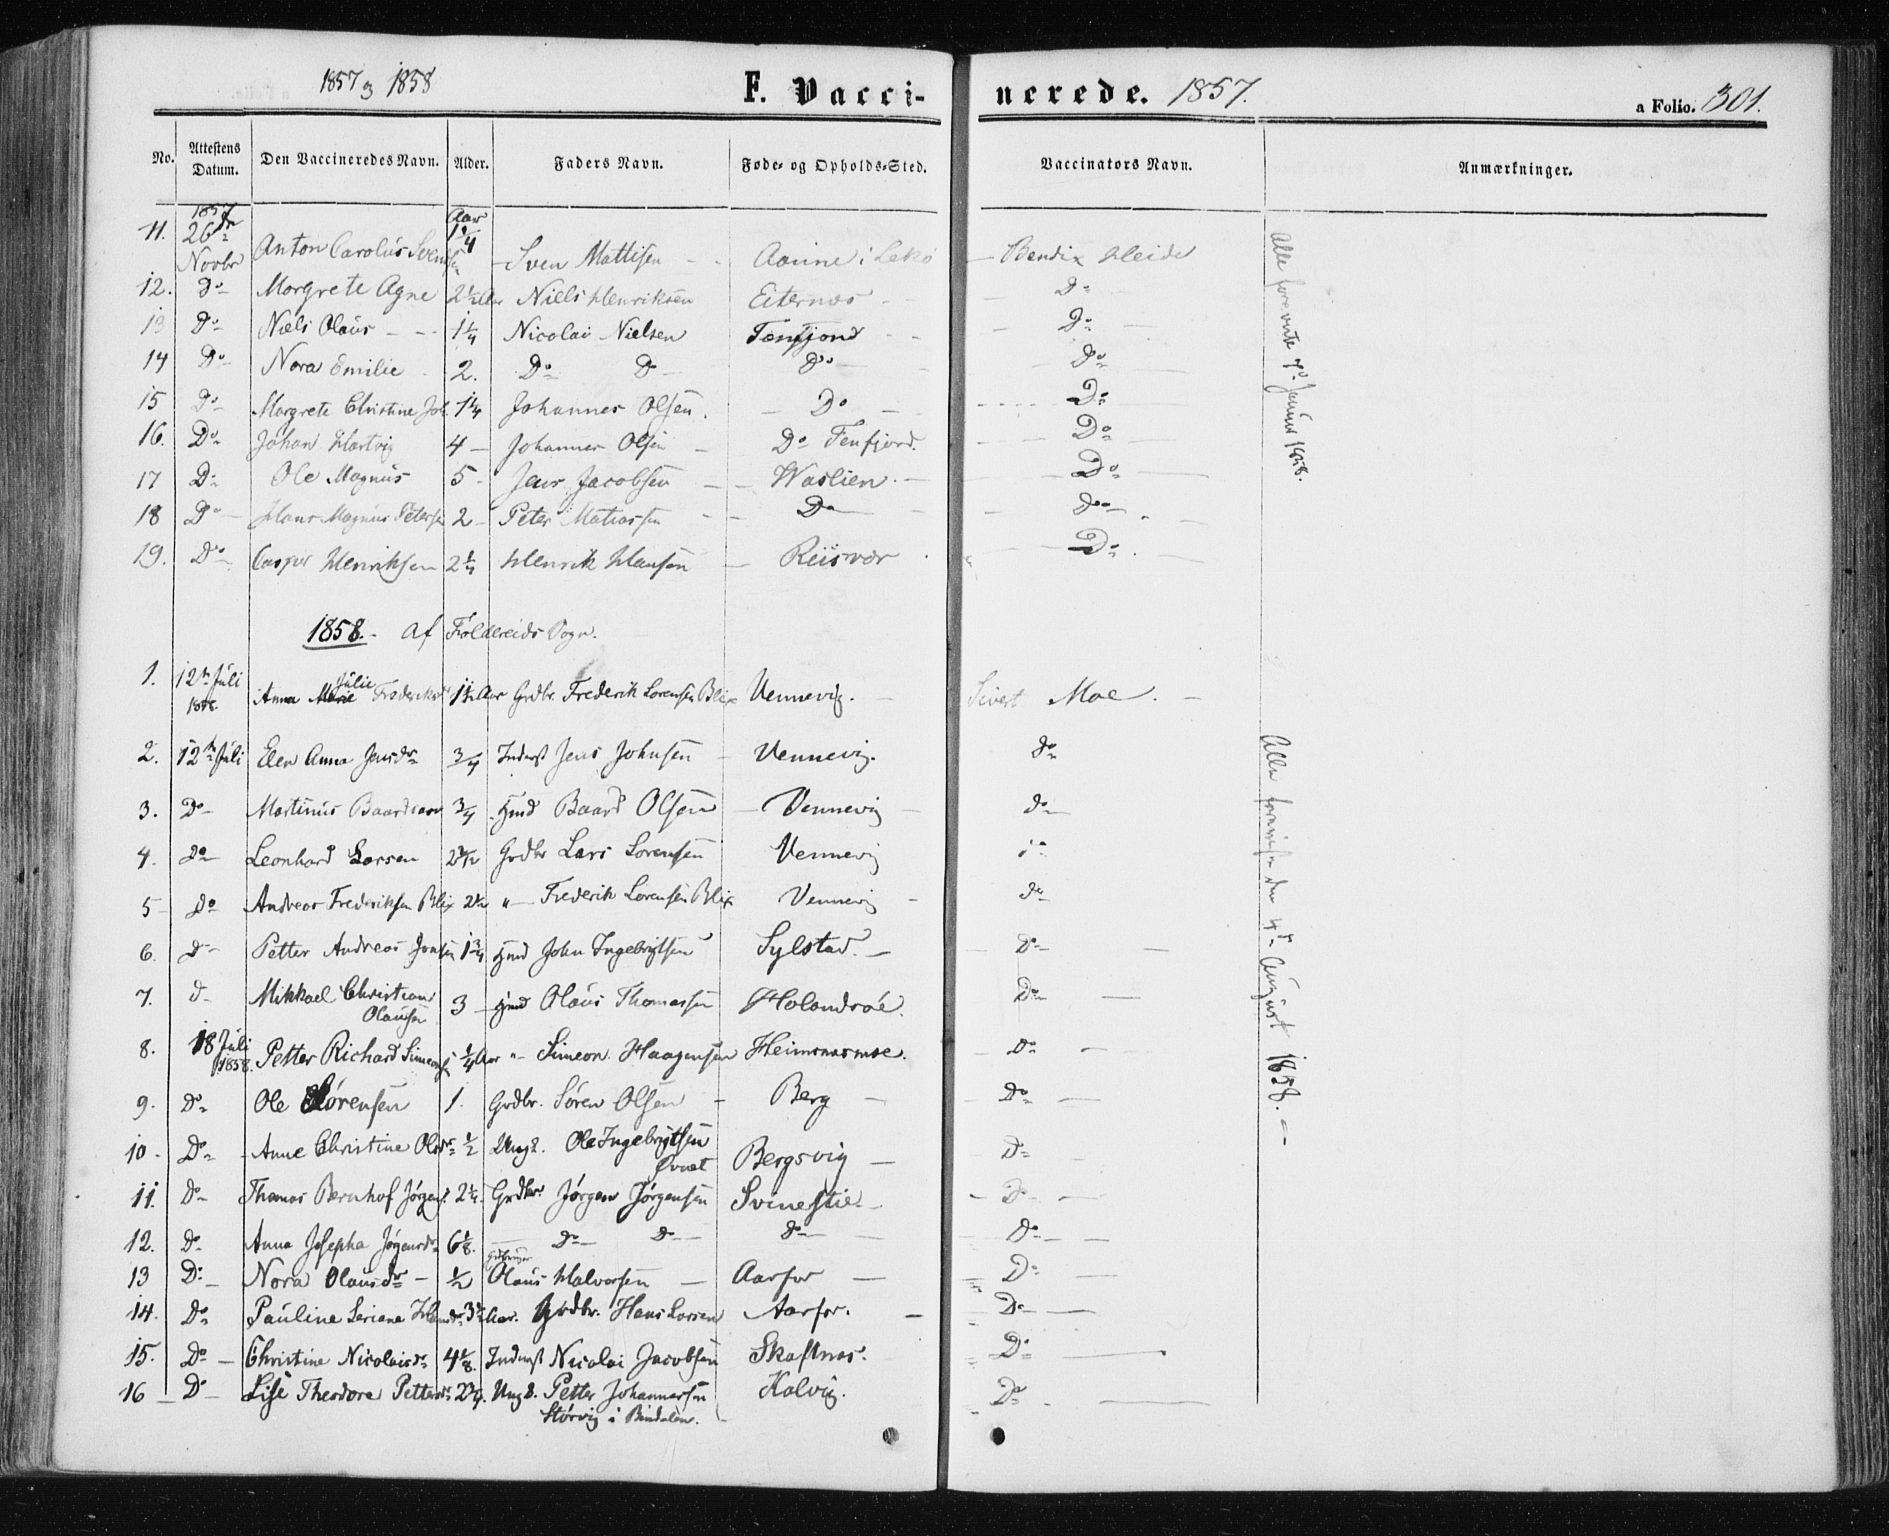 1857 og 1858 F. Vaccinerede. 1857. a Folio. 301.
No. Attestens Datum. Den Vaccineredes Navn. Alder. Faders Navn. Føde- og Opholds-Sted. Vaccinators Navn. Anmærkninger.
11. 1857 26de Novbr Anton Carolus Svensen Aar 1 1/4 Sven Mattisen i Lekø Bendix Heide
12. Do Margrete Agne 2 1/2 Aar Niels Henriksen Eiternæs Do
13 Do Niels Olaus 1 1/4 Nicolai Nielsen Tenfjord Do
14 Do Nora Emilie 2. Do Do Do Do
15 Do Margrete Christine Joh. 1 1/4 Johannes Olsen. Do Do
16. Do Johan Hartvig 4 Johannes Olsen Do Tenfjord. Do
17 Do Ole Magnus 5 Jens Jacobsen Waslien. Do
18 Do Hans Magnus Petersen 2 Peter Matiassen Do Do
19. Do Casper Henriksen 2 1/4 Henrik Hansen Riisvær Do
Alle foreviste 7de Januar 1858.
1858. af Foldereids Sogn.
1. 12te Juli 1858. Anna Julie Frederiksdr 1 1/2 Aar Grdbr. Frederik Lorensen Blix Vennevig. Sivert Moe.
2. 12te Juli Elen Anna Jensdr 3/4 Inderst Jens Johnsen Vennevig. do
3. Do Martinus Baardsen 3/4 Hmd Baard Olsen Vennevig do
4. Do Leonhard Larsen Grdbr Lars Lorensen Vennevig do
5 Do Andreas Frederiksen Blix 2 1/2 " Frederik Lorensen Blix Vennevig do
6. Do Petter Andreas Jonsen 1 3/4 Hmd John Ingebrigtsen Sylstad. Do
7. d Mikkael Christian Olaussen 3 Hmd Olaus Thomassen Holandsøe. Do
8. 18 Juli 1858. Petter Richard Simeonsen 1/4 Aar " Simeon Haagensen Heimsnæsmoe. Do
9. Do Ole Sørensen 1. Grdbr. Søren Olsen Berg Do
10 Do Anne Christine Olsdr 1/2 Ungk. Ole Ingebrigtsen Øvnet Bergsvig Do
11. Do Thomas Bernhof Jørgens. 2 1/4. Grdbr. Jørgen Jørgensen Svinestie. Do
12. Do Anna Josepha Jørgensdr 6 1/8. Do Do Do Do
13 Do Nora Olausdr 1/2 Grdbruger Olaus Halvorsen Aarfor Do
14. Do Pauline Seriane Hansdr Aar. Grdbr. Hans Larsen Aarfor. Do
15. Do Christine Nicolaisdr 4 1/8. Inderst Nicolai Jacobsen Skaftnæs. Do
16 Do Lise Theodora Pettersdr 2 3/4. Ungk. Petter Johannessen Størvig i Bindalen. Kalvig. Do
Alle foreviste den 4de August 1858.